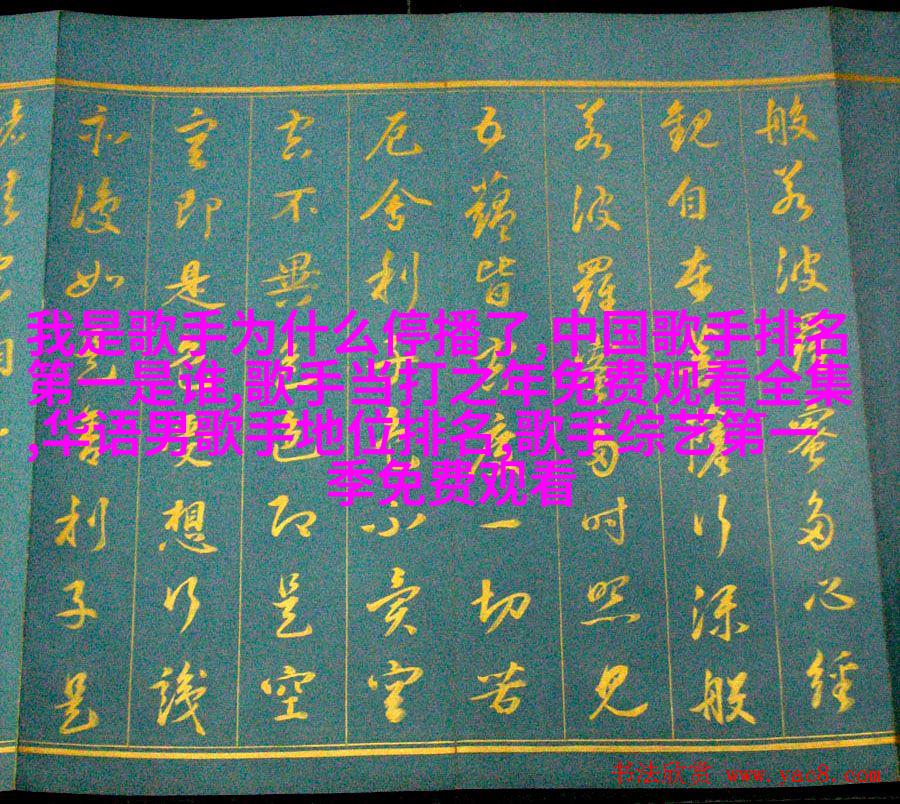 般若波羅蜜多心經
觀自在菩薩行深般
若波羅蜜多時照見
五蘊皆空度一切苦
厄舍利子色不異空
空不異色色即是空
空即是色受想行識
亦復如是舍利子是
我是歌手为什么停播了,中国歌手排名
第一是谁,歌手当打之年免费观看全集
,华语男歌手地位排名,歌手综艺第一
季免费观看
书法欣赏 www.yac8.com